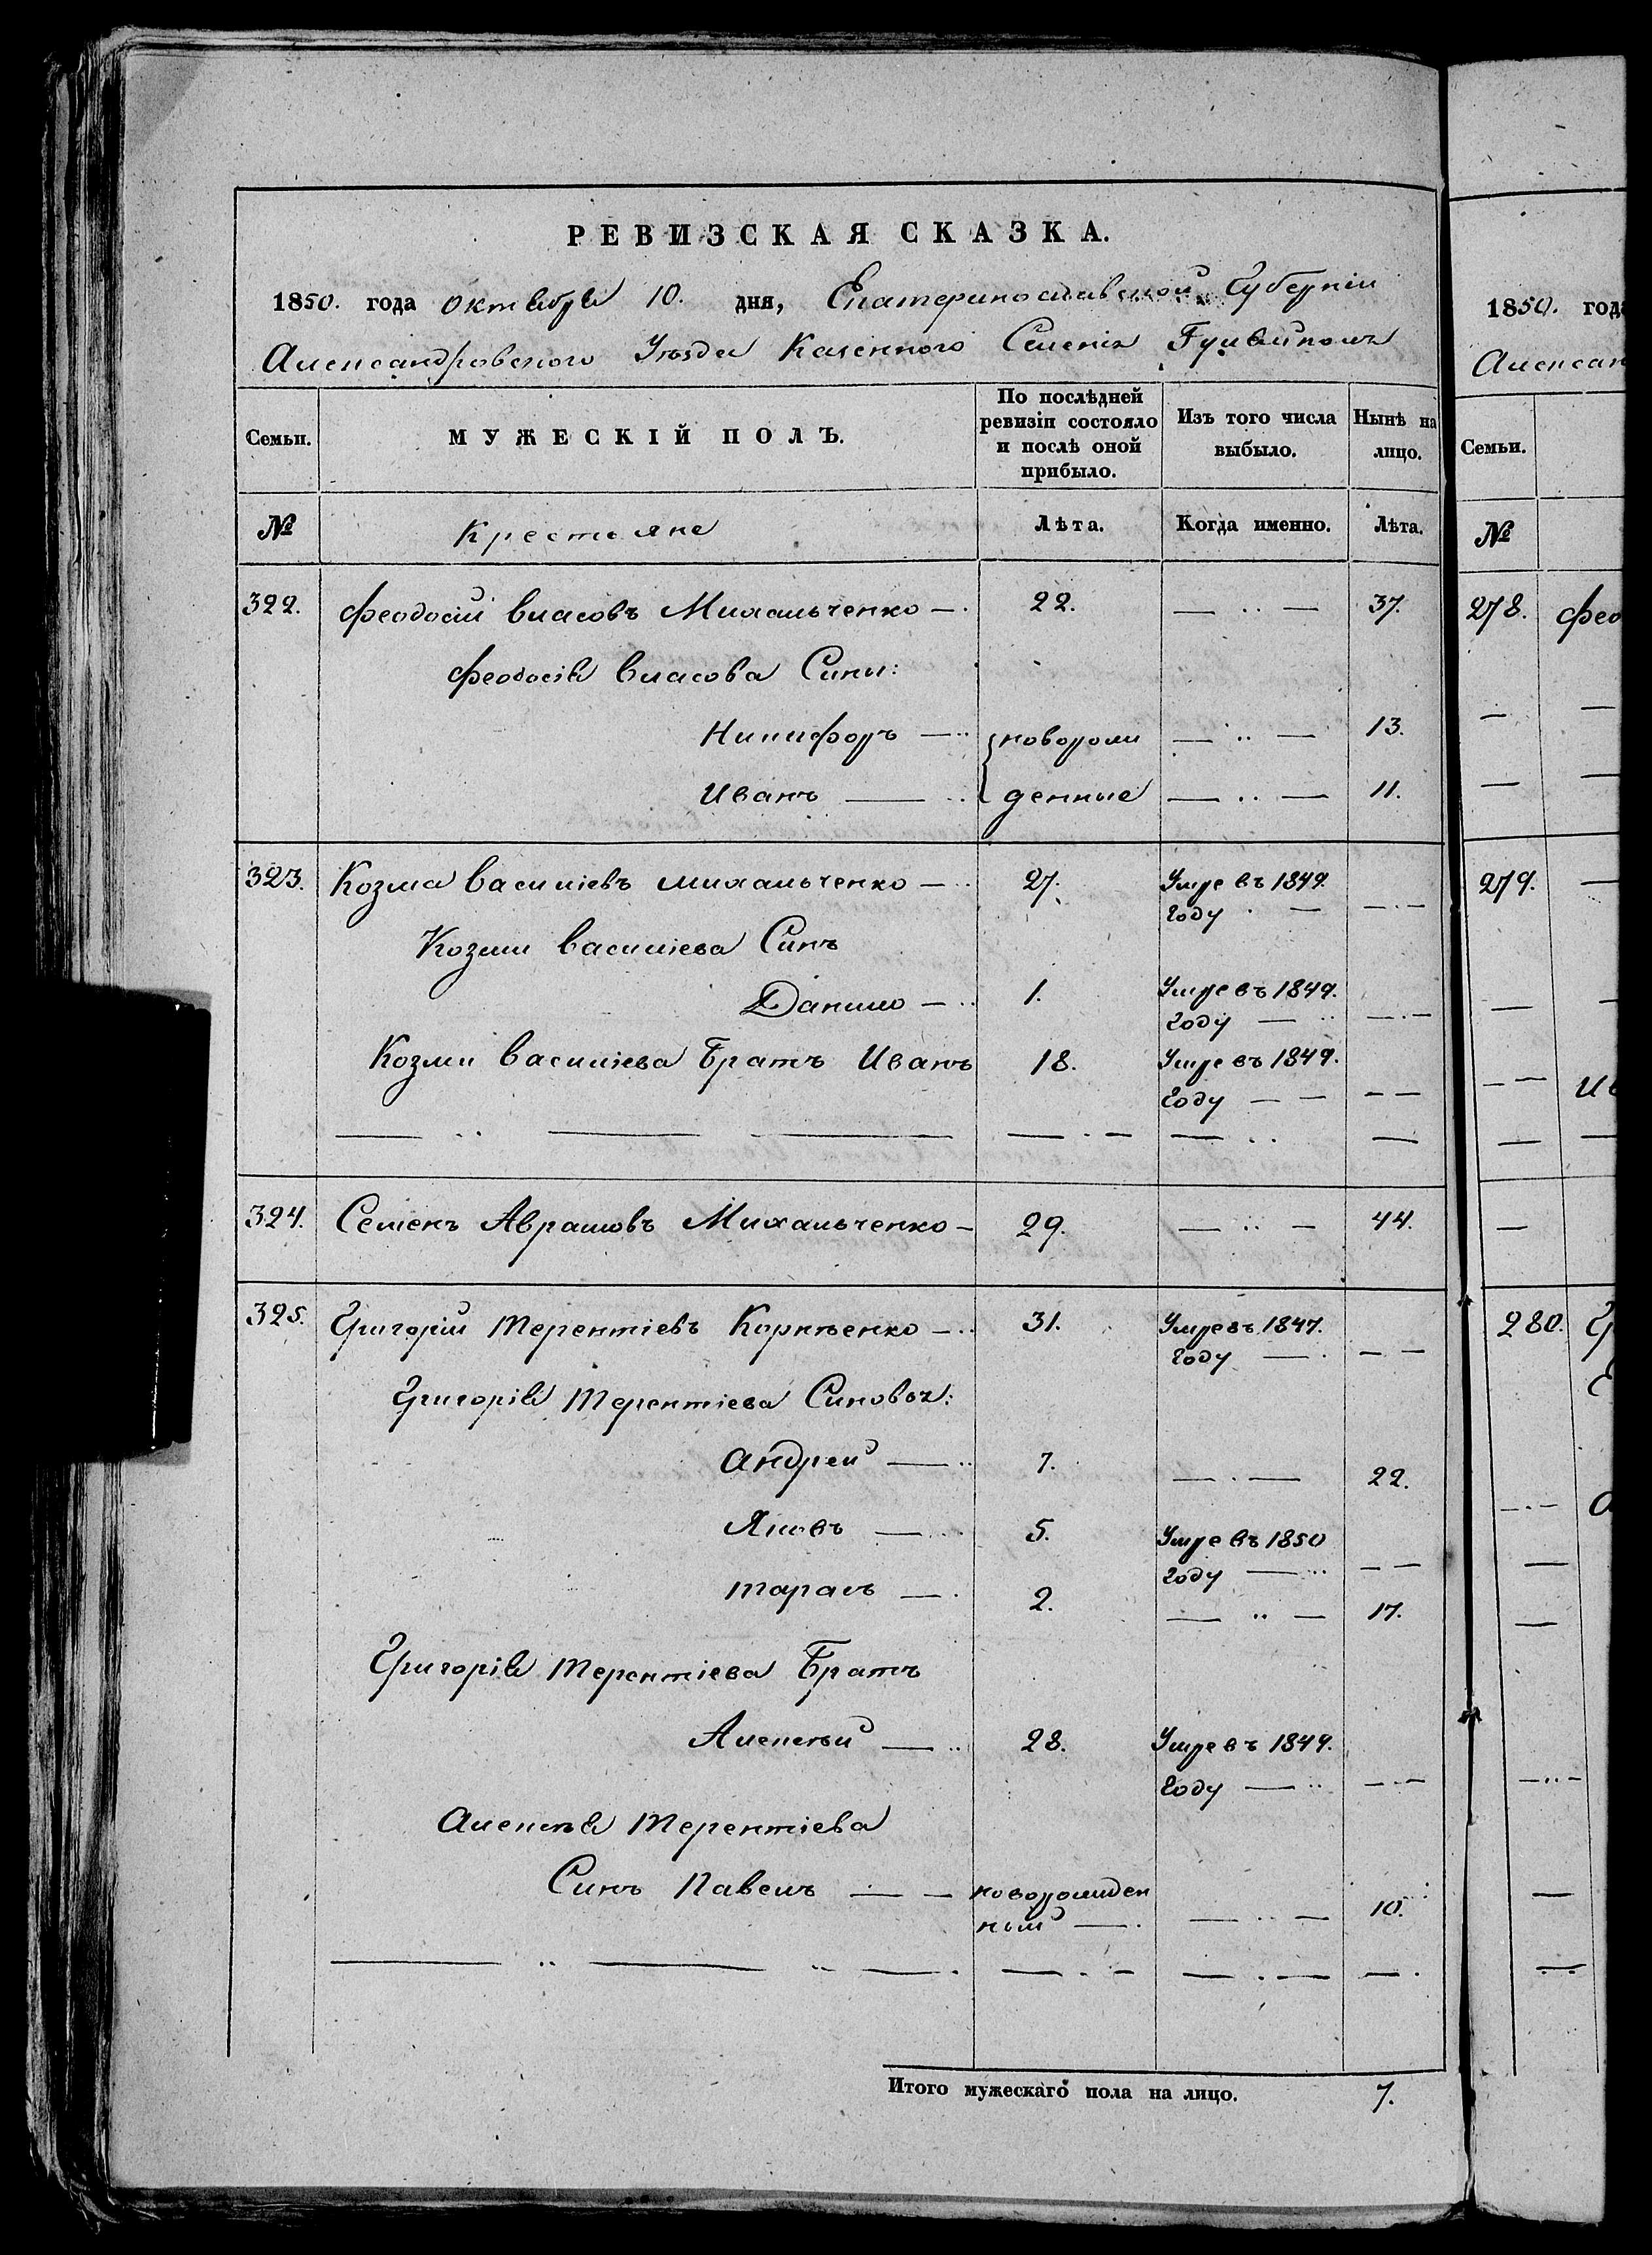 РЕВИЗСКАЯ СКАЗКА.
1850. года октября 10. дня, Екатеринославской Губерніи
Александровского Уѣзда Казенного Селенія Гуляйполя
Семьи. МУЖЕСКІЙ ПОЛЪ. По послѣдней ревизіи состояло и послѣ оной прибыло. Изъ того числа выбыло. Нынѣ на лицо.
№ Крестьяне Лѣта. Когда именно. Лѣта.
322. Феодосій Власовъ Михальченко — 22. — 37.
Феодосія Власова Сины:
Никифоръ — новорож — 13.
Иванъ — денные — 11.
323. Козма Василіевъ Михальченко — 27. Умре въ 1849.
году —
Козми Василіева Синъ
Данило — 1. Умре въ 1849.
году —
Козми Василіева Братъ Иванъ 18. Умре въ 1849.
году —
324. Семенъ Аврамовъ Михальченко — 29. — 44.
325. Григорій Терентіевъ Корнѣенко — 31. Умре въ 1847.
году —
Григорія Терентіева Синовья:
Андрей — 7. — 22.
Яковъ — 5. Умре въ 1850
году —
Тарасъ — 2. — 17.
Григорія Терентіева Братъ
Алексѣй — 28. Умре въ 1849.
году —
Алексѣя Терентіева
Синъ Павелъ — новорожден
ный — 10.
Итого мужескаго пола на лицо. 7.
1850. года
Алексан
Семьи.
№
278. Фео
279.
Ив
280. Гр